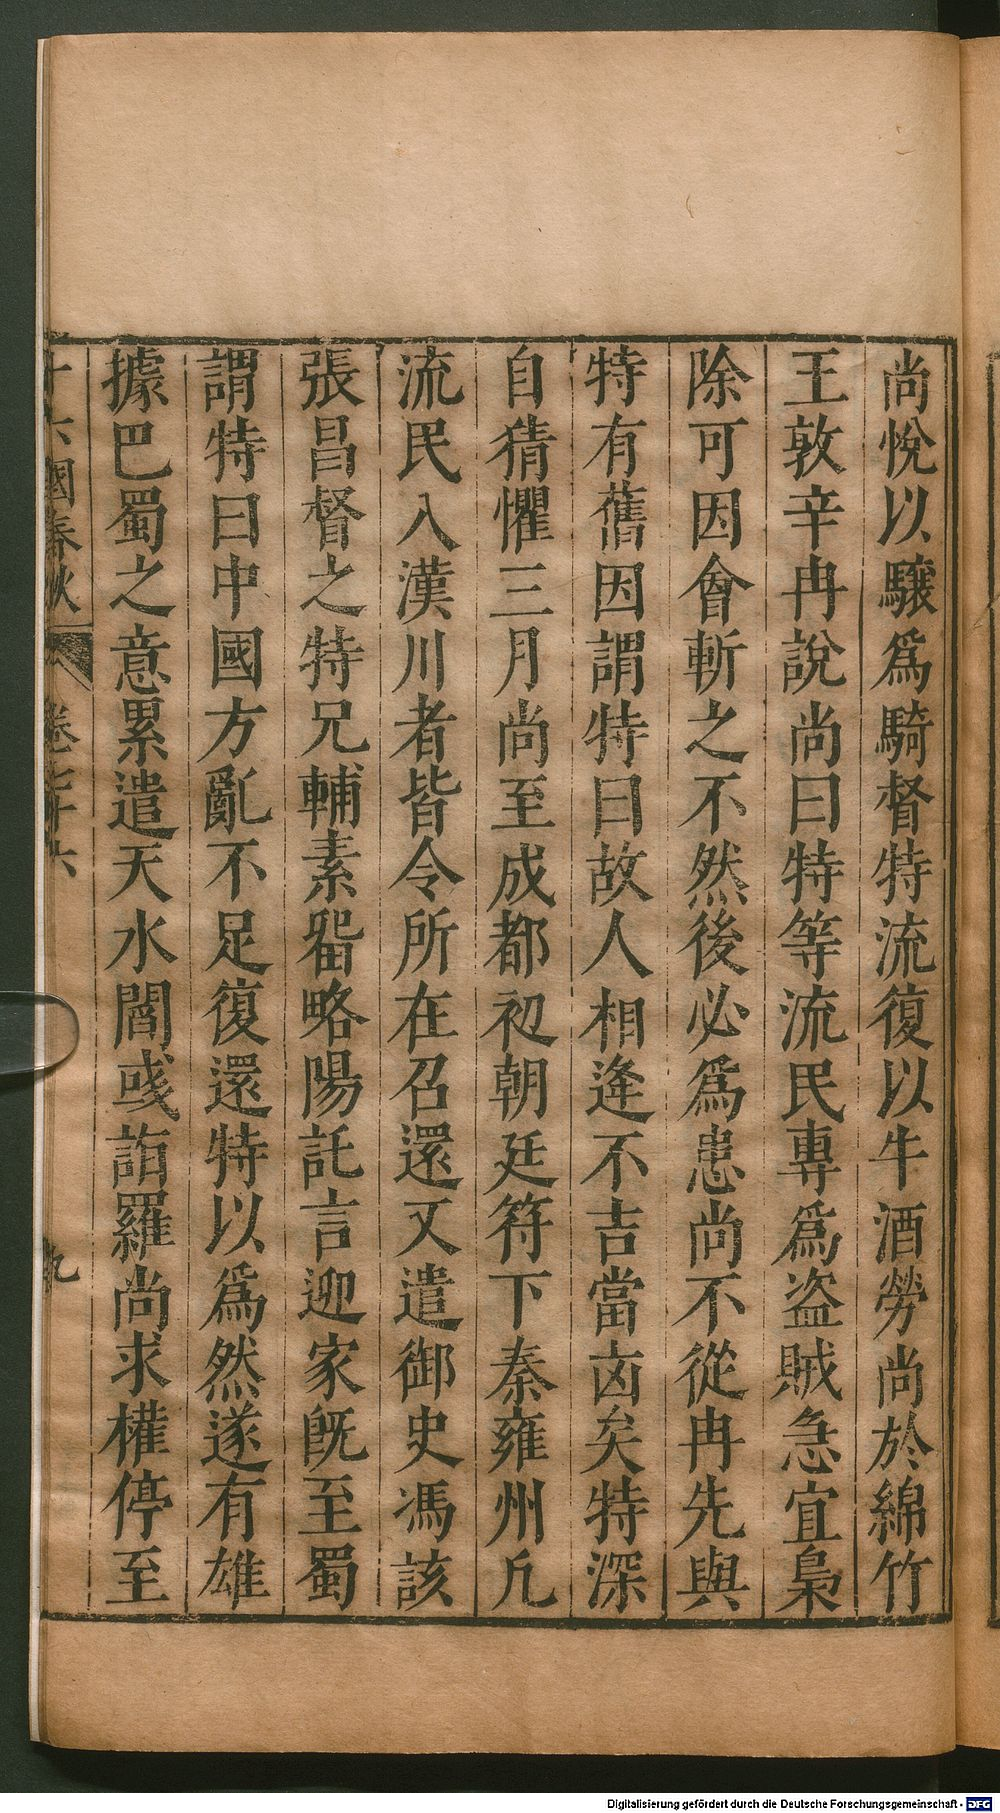 尚悅以驤爲騎督特流復以牛酒勞尚於綿竹
王敦辛冉說尚曰特等流民專爲盜賊急宜梟
除可因會斬之不然後必爲患尚不從冉先與
特有舊因謂特曰故人相逢不吉當凶矣特深
自猜懼三月尚至成都初朝廷符下秦雍州凡
流民入漢川者皆令所在召還又遣御史馮該
張昌督之特兄輔素留略陽託言迎家旣至蜀
謂特曰中國方亂不足復還特以爲然遂有雄
據巴蜀之意累遣天水閻彧詣羅尚求權停至
十六國春秋 卷七十六 九
Digitalisierung gefördert durch die Deutsche Forschungsgemeinschaft - DFG